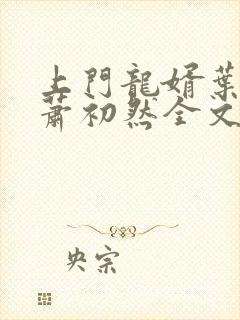 上門龍婿葉
蕭初然全文
央宗